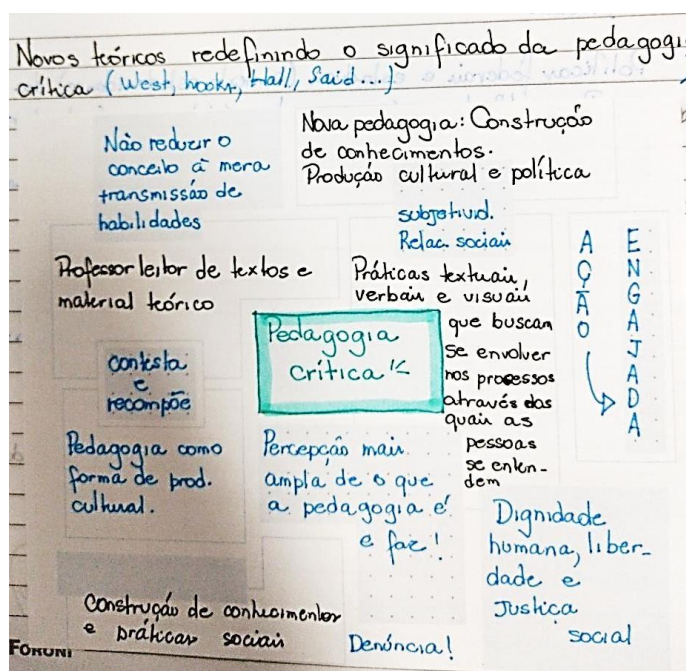 Novos teóricos redefinindo o significado da pedagogi
crítica (West, hooks, Hall, Said...)
Não reduzir o
conceito à mera
transmissão de
habilidades
Nova pedagogia: Construção
de conhecimentos.
Produção cultural e política
subjetivid.
Relac. sociais
Professor leitor de textos e
material teórico
Práticas textuais,
verbais e visuais
que buscam
se envolver
nos processos
através dos
quais as
pessoas
se enten-
dem
AÇÃO
ENGAJADA
Pedagogia
crítica
contesta
e
recompõe
Pedagogia como
forma de prod.
cultural.
Percepção mais
ampla de o que
a pedagogia é
e faz!
Dignidade
humana, liber-
dade e
Justiça
social
Construção de conhecimentos
e práticas sociais
Denúncia!
FORONI